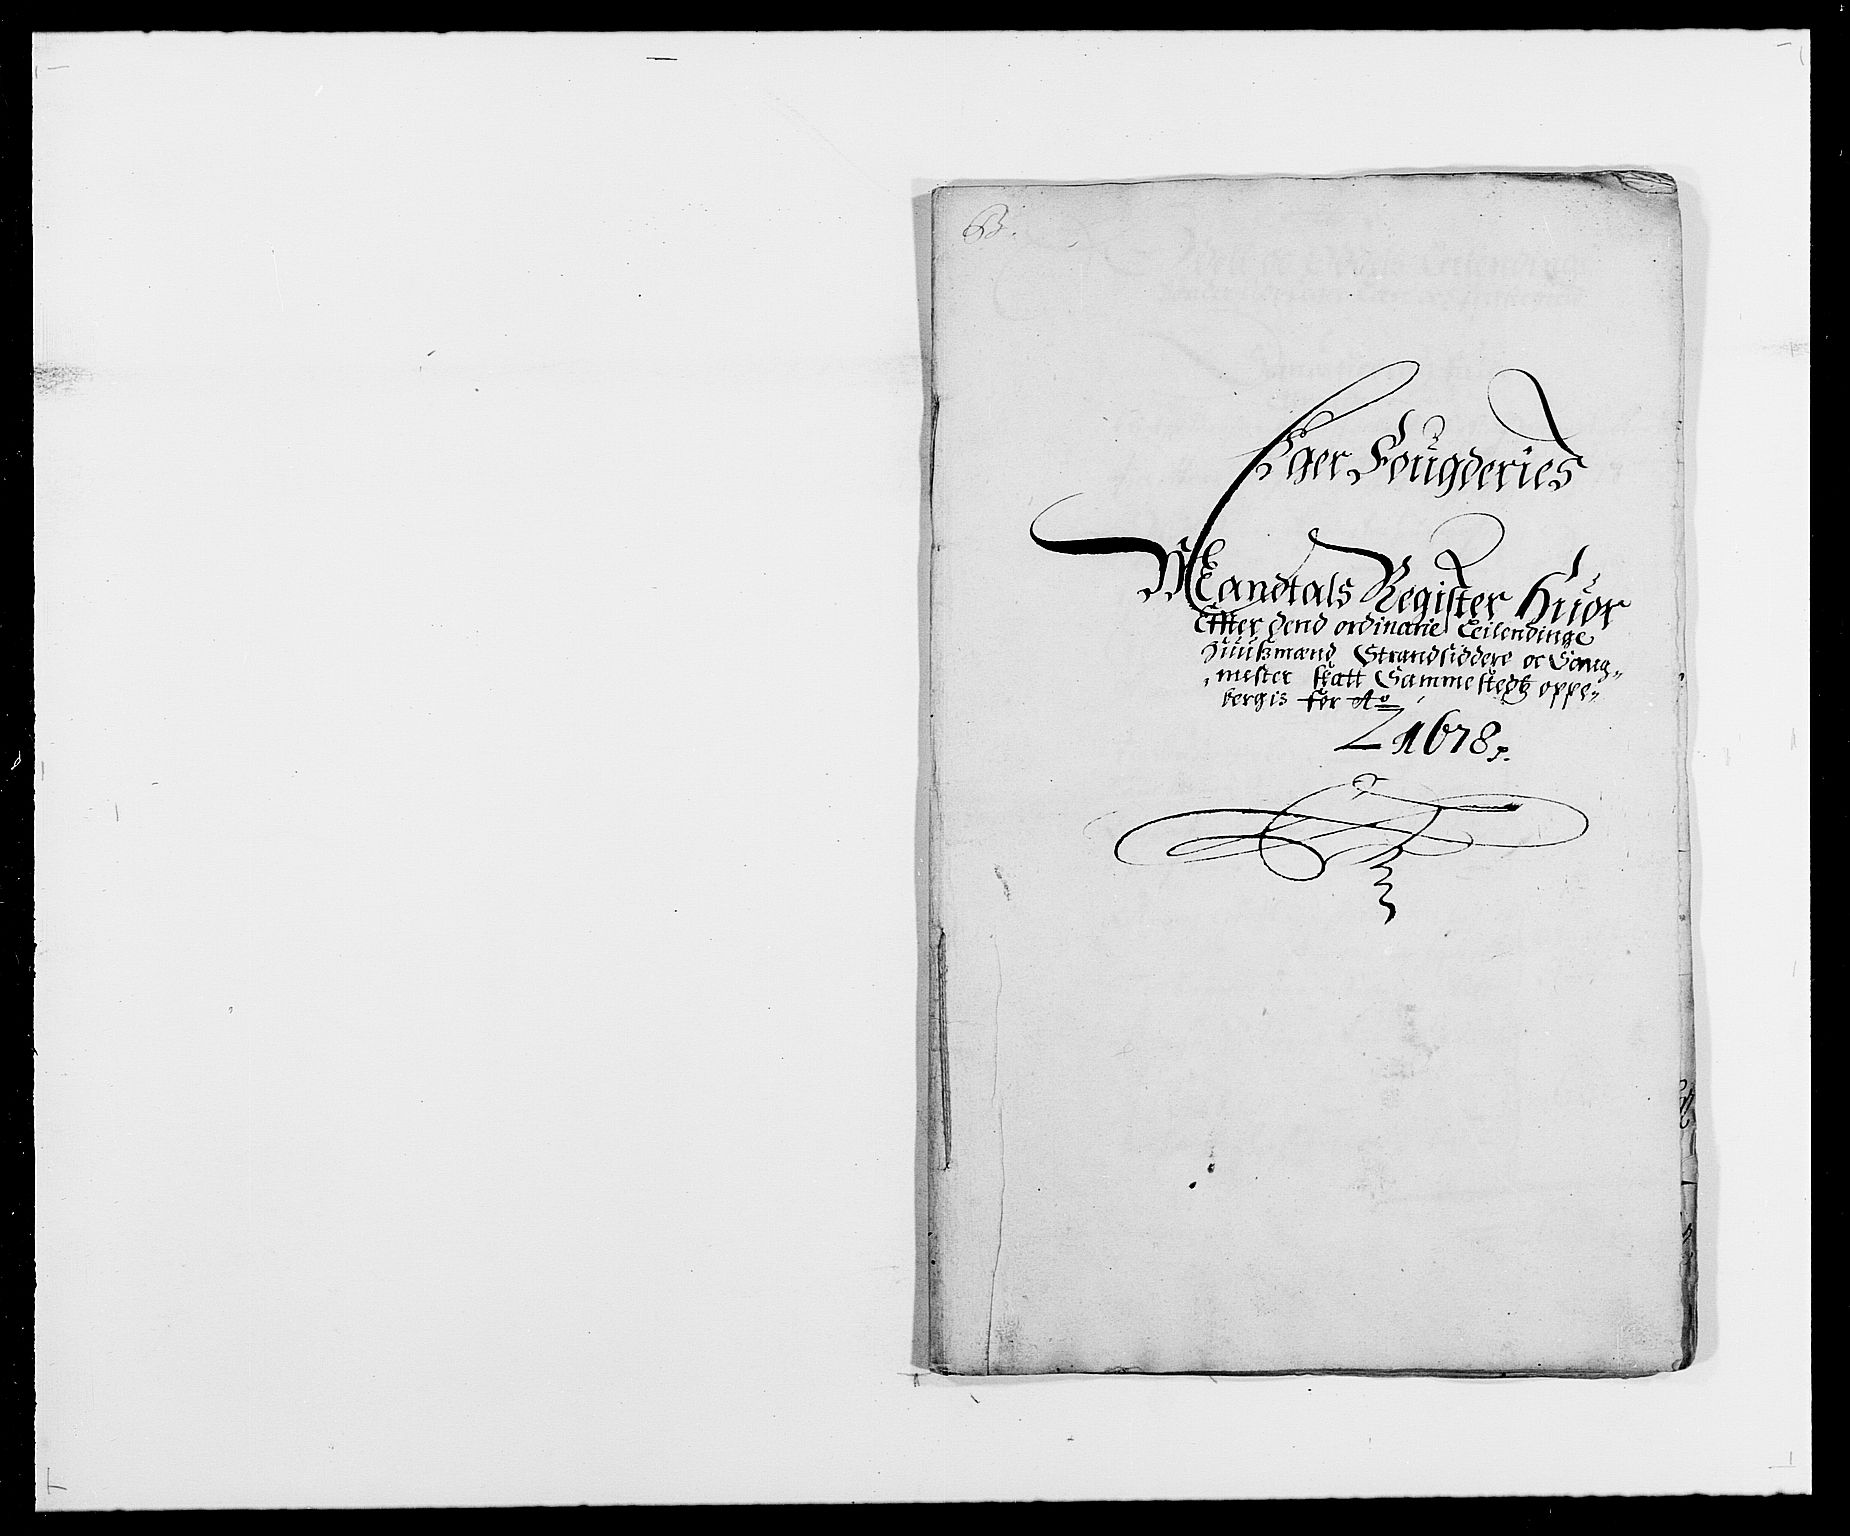 B.
Eger Fougderies
Mandtals Register Huor
Effter dend ordinarie Leilendinge
Huuszmænd Strandsiddere oc Saug„
„mester skatt Sammestedtz oppe„
bergis for Ao
1678.